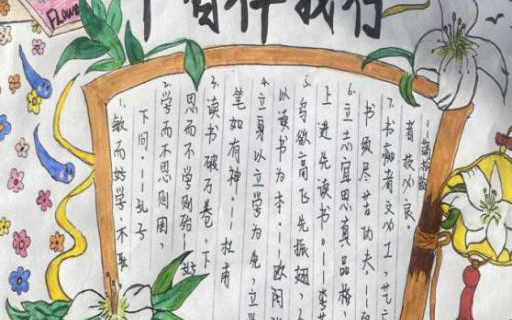 伴我行
1.敏而好学,不耻
下问。——孔子
2.学而不思则罔,
思而不学则殆——
3.读书破万卷,下
笔如有神。——杜甫
4.立身以立学为先,立
以读书为本。——欧阳
5.鸟欲高飞先振翅,
上进先读书。——李
6.立志宜思真品格,
书须尽苦功夫——
7.书痴者文必工,艺
者技必良。
——蒲松龄